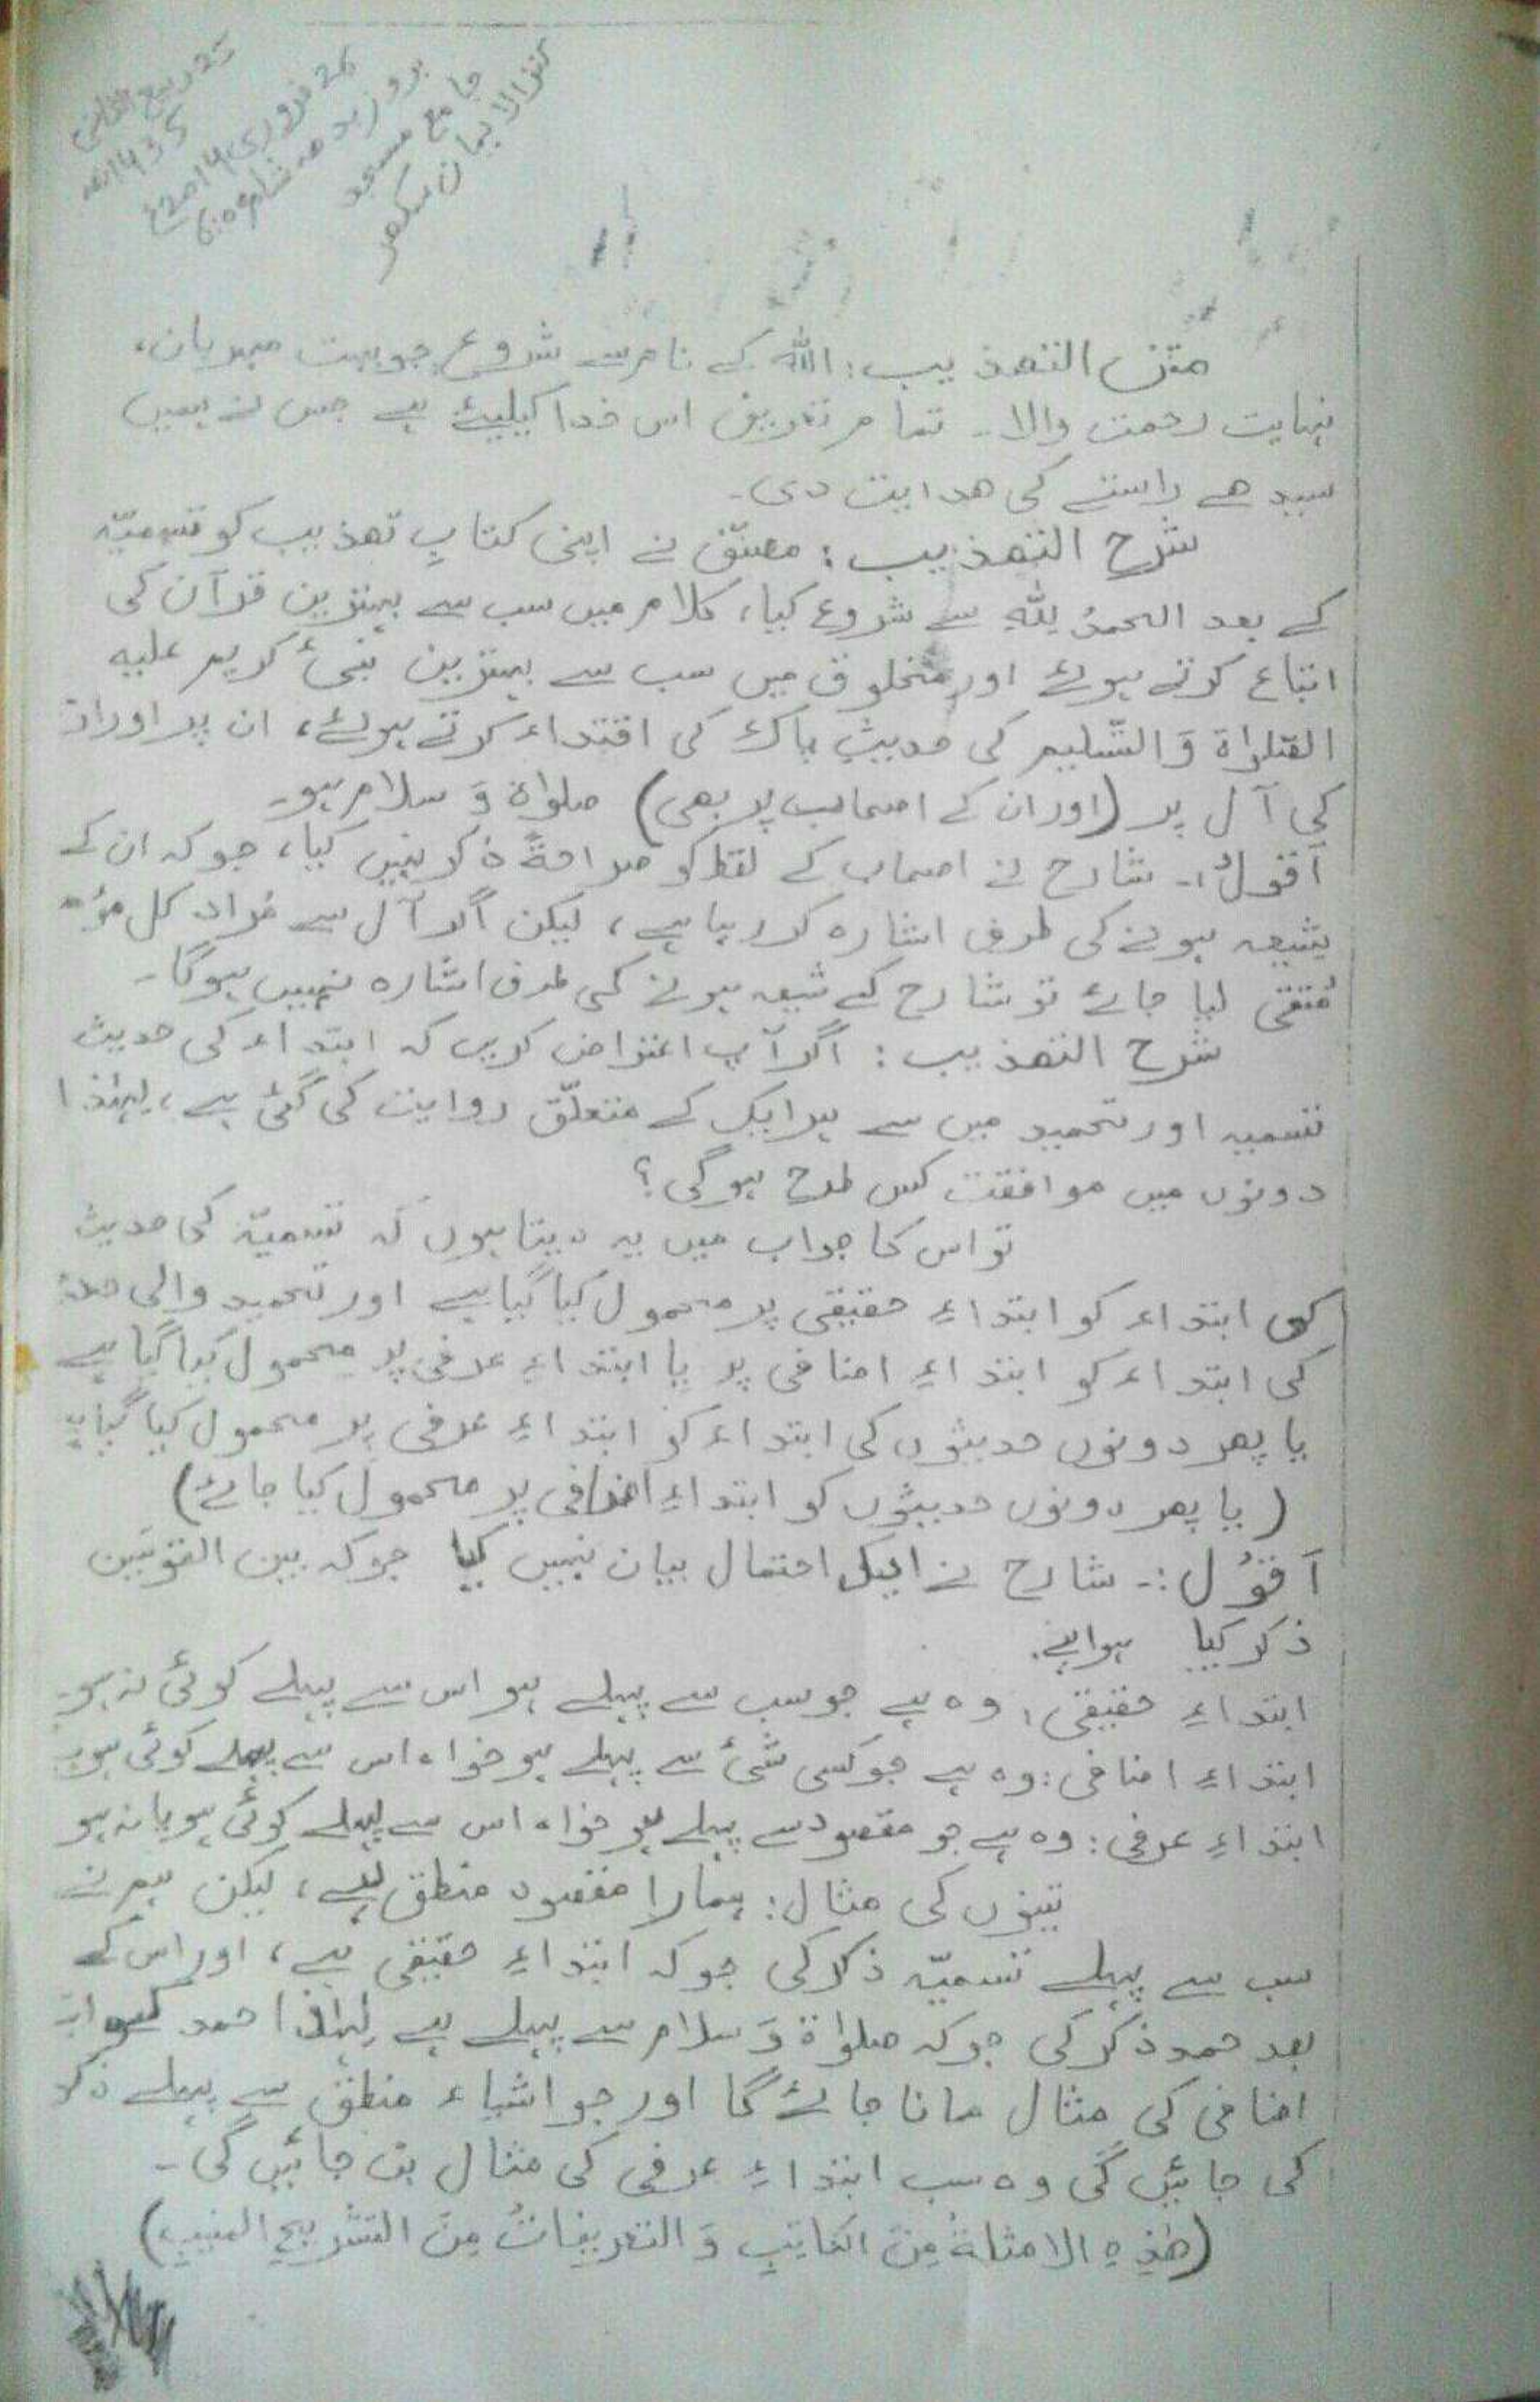 25 ربیع الثانی
1435ھ
26 فروری 2014ء
بروز بدھ شام 6:05
جامع مسجد
کنزالایمان سکھر
متن التھذیب: اللہ کے نام سے شروع جو بہت مہربان،
نہایت رحمت والا۔ تمام تعریف اس خدا کیلیئے ہے جس نے ہمیں
سیدھے راستے کی ھدایت دی۔
شرح التھذیب: مصنّف نے اپنی کتاب تھذیب کو تسمیّہ
کے بعد الحمدُ لِلّٰہِ سے شروع کیا، کلام میں سب سے بہترین قرآن کی
اتباع کرتے ہوئے اور مخلوق میں سب سے بہترین نبیٔ کریم علیہ
الصّلواۃ وَالتّسلیم کی حدیثِ پاک کی اقتداء کرتے ہوئے، ان پر اور ان
کی آل پر (اور ان کے اصحاب پر بھی) صلواۃ وَ سلام ہو۔
اَقُولُ:۔ شارح نے اصحاب کے لفظ کو صراحۃً ذکر نہیں کیا، جو کہ ان کے
شیعہ ہونے کی طرف اشارہ کر رہا ہے، لیکن اگر آل سے مُراد کل مؤ
مُتقی لیا جائے تو شارح کے شیعہ ہونے کی طرف اشارہ نہیں ہوگا۔
شرح التھذیب: اگر آپ اعتراض کریں کہ ابتداء کی حدیث
تسمیہ اور تحمید میں سے ہر ایک کے متعلّق روایت کی گئی ہے، لہٰذا
دونوں میں موافقت کس طرح ہوگی؟
تو اس کا جواب میں یہ دیتا ہوں کہ تسمیّہ کی حدیث
کی ابتداء کو ابتداءِ حقیقی پر محمول کیا گیا ہے اور تحمید والی حدیث
کی ابتداء کو ابتداءِ اضافی پر یا ابتداءِ عرفی پر محمول کیا گیا ہے
یا پھر دونوں حدیثوں کی ابتداء کو ابتداءِ عرفی پر محمول کیا گیا ہے
(یا پھر دونوں حدیثوں کو ابتداءِ اضافی پر محمول کیا جائے)
اَقُوْل:۔ شارح نے ایک احتمال بیان نہیں کیا جو کہ بین القوسَین
ذکر کیا ہوا ہے۔
ابتداءِ حقیقی: وہ ہے جو سب سے پہلے ہو اس سے پہلے کوئی نہ ہو۔
ابتداءِ اضافی: وہ ہے جو کسی شئ سے پہلے ہو خواہ اس سے پہلے کوئی ہو
ابتداءِ عرفی: وہ ہے جو مقصود سے پہلے ہو خواہ اس سے پہلے کوئی ہو یا نہ ہو
تینوں کی مثال: ہمارا مقصود منطق ہے، لیکن ہم نے
سب سے پہلے تسمیّہ ذکر کی جو کہ ابتداءِ حقیقی ہے، اور اس کے
بعد حمد ذکر کی جو کہ صلواۃ وَ سلام سے پہلے ہے لہٰذا حمد کو
اضافی کی مثال مانا جائے گا اور جو اشیاء منطق سے پہلے ذکر
کی جائیں گی وہ سب ابتداءِ عرفی کی مثال بن جائیں گی۔
(ھٰذِہِ الامثلۃُ مِنَ الکاتِبِ وَ التعریفاتُ مِنَ التشریحِ المنیبِ)